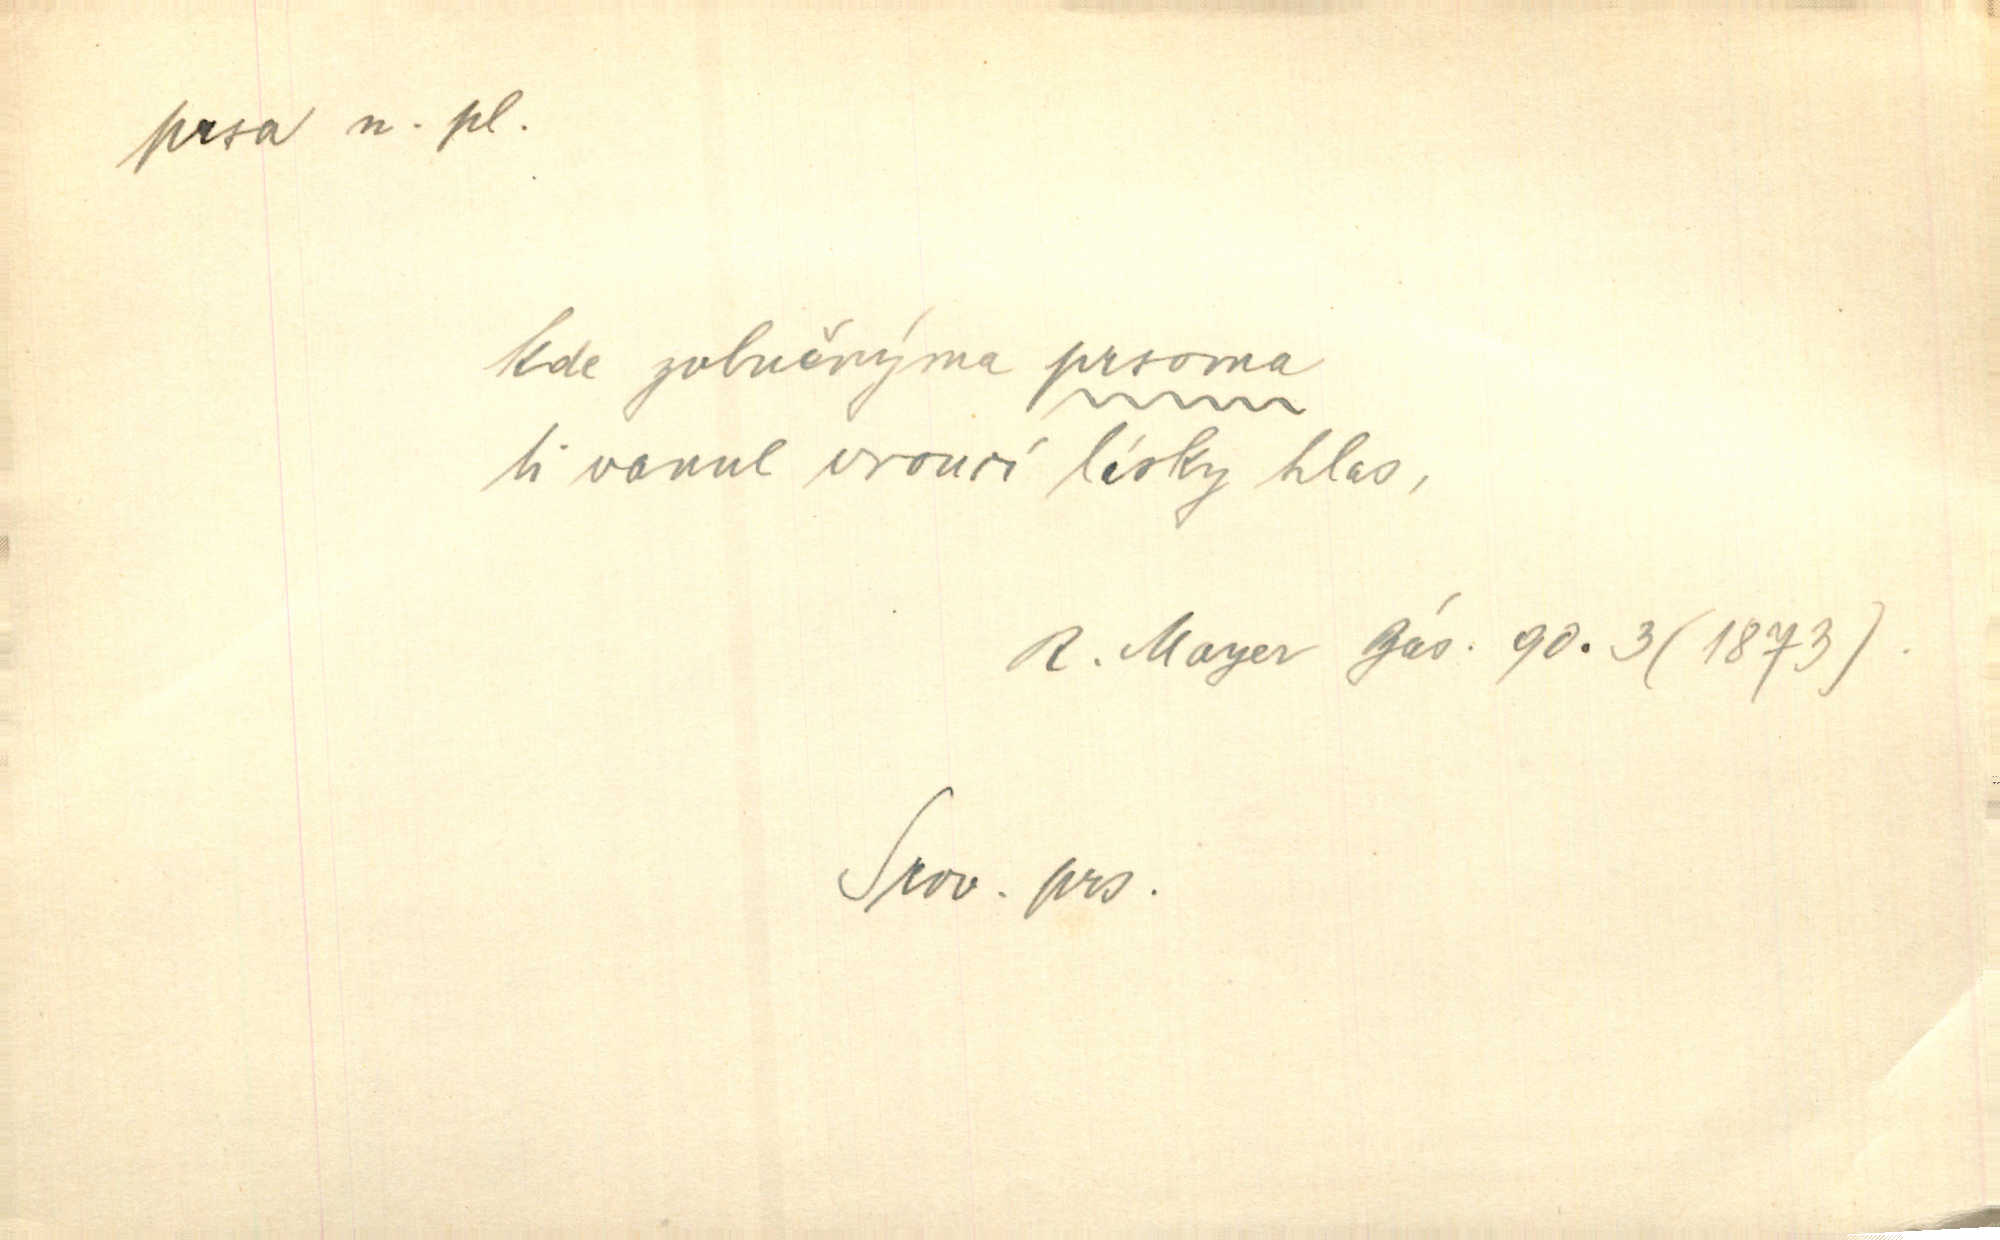 prsa n. pl.
kde zvlučnýma prsoma
ti vanul vroucí lásky hlas,
R. Mayer Bás. 90. 3 (1873).
Srov. prs.